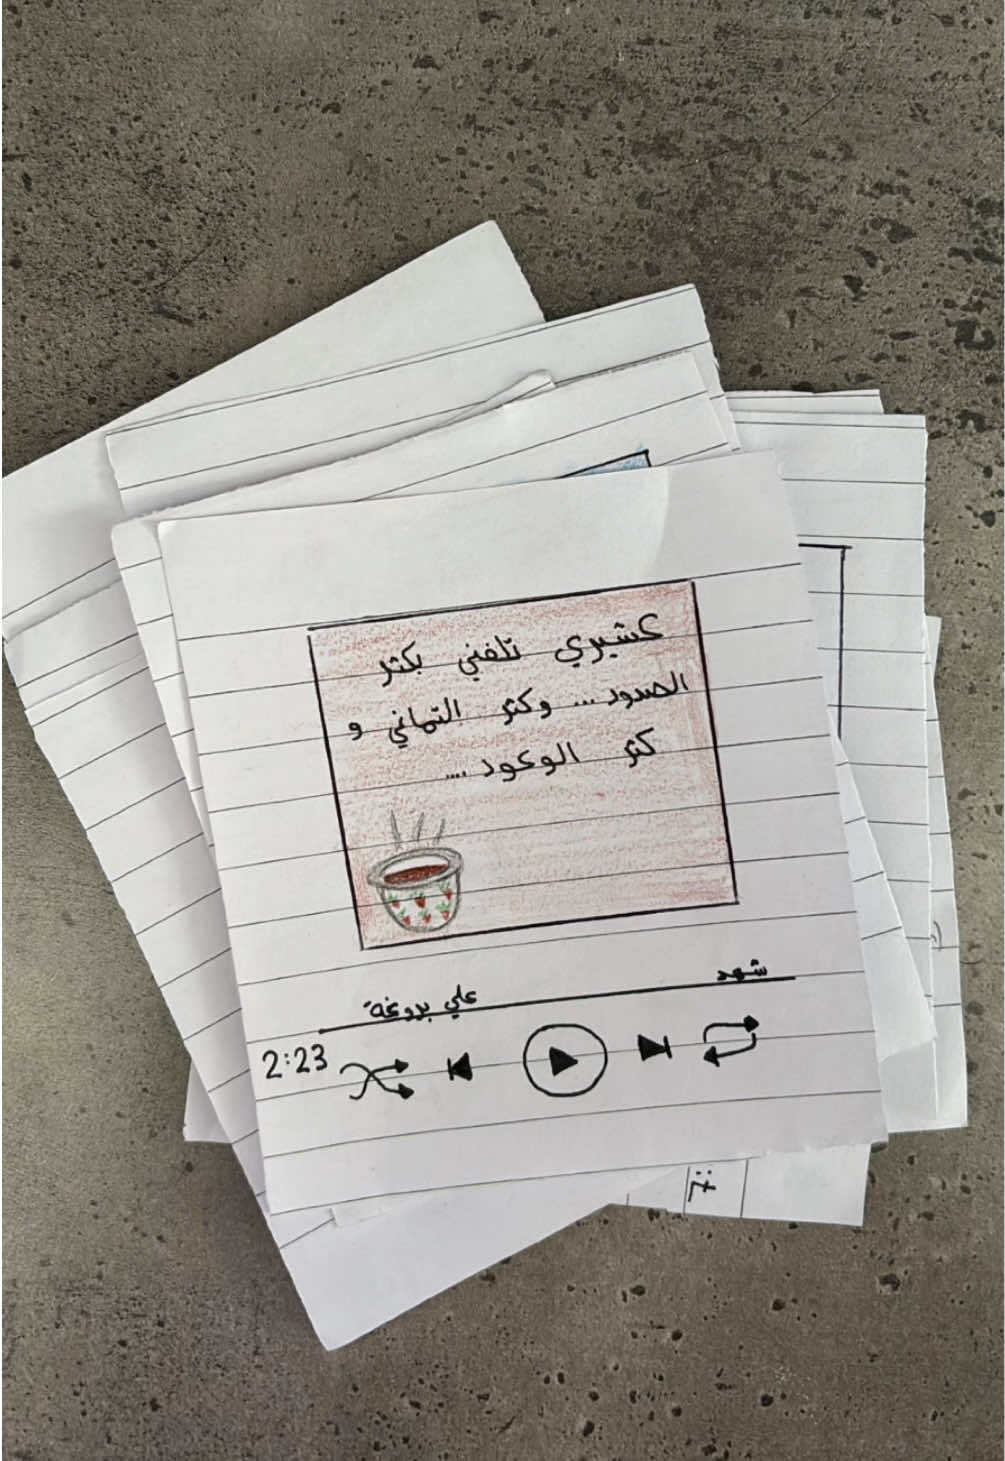 عشيري تلفني بكثر
الصدود... وكثر التماني و
كثر الوعود....
شهد
علي بروغة
2:23
7: